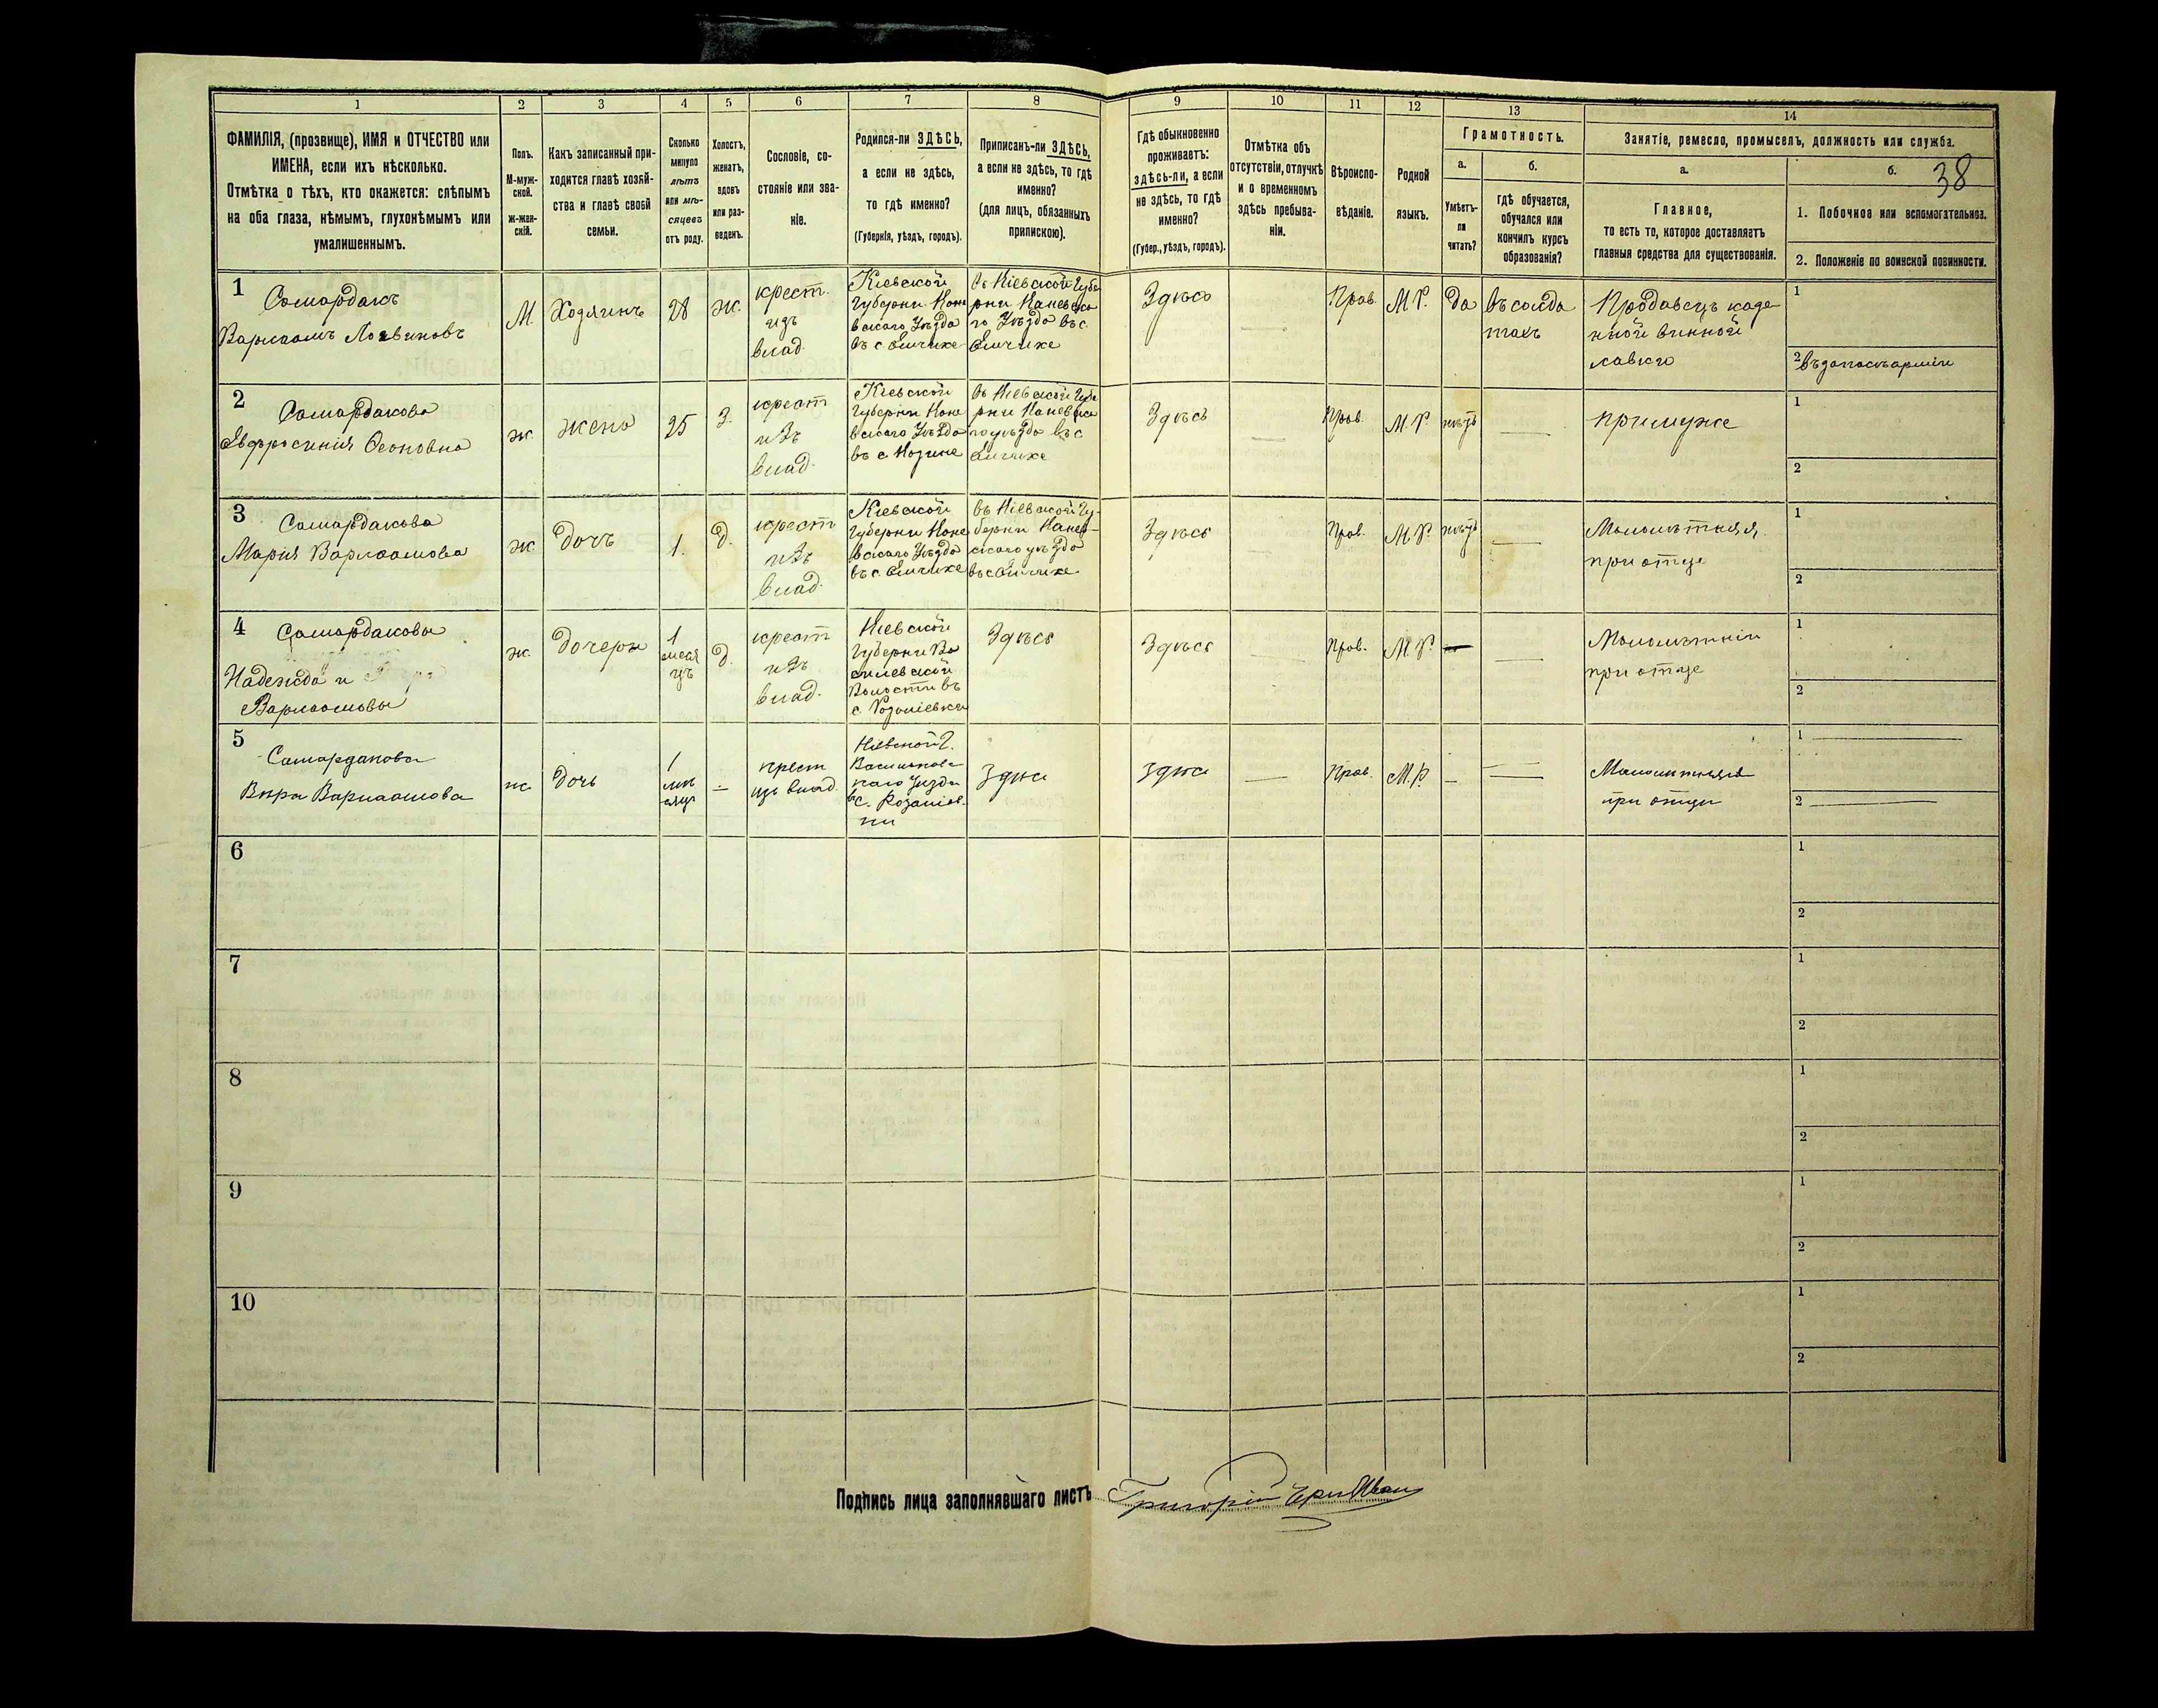 1 2 3 4 5 6 7 8 9 10 11 12 13 14
38
ФАМИЛІЯ, (прозвище), ИМЯ и ОТЧЕСТВО или
ИМЕНА, если ихъ нѣсколько.
Отмѣтка о тѣхъ, кто окажется: слѣпымъ
на оба глаза, нѣмымъ, глухонѣмымъ или
умалишеннымъ.
Полъ.
М-муж-
ской.
ж-жен-
скій.
Какъ записанный при-
ходится главѣ хозяй-
ства и главѣ своей
семьи.
Сколько
минуло
лѣтъ
или мѣ-
сяцевъ
отъ роду.
Холостъ,
женатъ,
вдовъ
или раз-
веденъ.
Сословіе, со-
стояніе или зва-
ніе.
Родился-ли ЗДѢСЬ,
а если не здѣсь,
то гдѣ именно?
(Губернія, уѣздъ, городъ).
Приписанъ-ли ЗДѢСЬ,
а если не здѣсь, то гдѣ
именно?
(для лицъ, обязанныхъ
припискою).
Гдѣ обыкновенно
проживаетъ:
здѣсь-ли, а если
не здѣсь, то гдѣ
именно?
(Губер., уѣздъ, городъ).
Отмѣтка объ
отсутствіи, отлучкѣ
и о временномъ
здѣсь пребыва-
ніи.
Вѣроиспо-
вѣданіе.
Родной
языкъ.
Грамотность.
а.
Умѣетъ-
ли
читать?
б.
гдѣ обучается,
обучался или
кончилъ курсъ
образованія?
Занятіе, ремесло, промыселъ, должность или служба.
а.
Главное,
то есть то, которое доставляетъ
главныя средства для существованія.
б.
1. Побочное или вспомагательное.
2. Положеніе по воинской повинности.
1
Самардакъ
Варлаамъ Логвиновъ
М.
Хозяинъ
28
ж.
крест.
изъ
влад.
Кіевской
Губерни Кане
вского Уѣзда
въ с
Въ Кіевской Губе
рни Каневско
го Уѣзда въ с
Здѣсь
Прав.
М.Р.
Да
въ солда
тахъ
Продавецъ казе
нной винной
лавки
1
2 въ запасѣ арміи
2
Самардакова
Евфросинія
ж.
жена
25
З.
крест
изъ
влад.
Кіевской
Губерни Кане
вского Уѣзда
въ с Козине
въ Кіевской Губе
рни Каневско
го уѣзда въ с
Здѣсь
Прав.
М.Р.
нѣтъ
при муже
1
2
3
Самардакова
Марія Варлаамова
ж.
Дочь
1.
Д.
крест
изъ
влад.
Кіевской
Губерни Кане
вского Уѣзда
въ с.
въ Кіевской Гу-
берни Канев-
ского уѣзда
въ с
Здѣсь
Прав.
М.Р.
нѣтъ
Малолѣтняя,
при отце
1
2
4
Самардаковы
Надежда и
Варлаамовы
ж.
Дочери
1
меся
цъ
Д.
крест
изъ
влад.
Кіевской
Губерни Ва
силевской
Волости въ
с.
Здѣсь
Здѣсь
Прав.
М.Р.
Малолѣтніи
при отце
1
2
5
Самардакова
Вѣра Варлаамова
ж.
Дочь
1
мѣ
сяцъ
крест
изъ влад.
Кіевской Г.
Васильков
скаго Уезда
въ с.
Здѣсь
Здѣсь
Прав.
М.Р.
Малолѣтняя
при отцѣ
1
2
6
1
2
7
1
2
8
1
2
9
1
2
10
1
2
Подпись лица заполнявшаго листъ Григорій